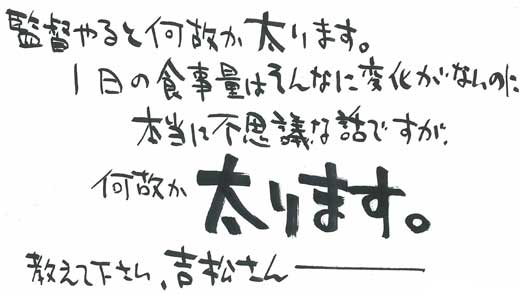 監督やると何故か太ります。
1日の食事量はそんなに変化がないのに
本当に不思議な話ですが、
何故か太ります。
教えて下さい、吉松さん―――